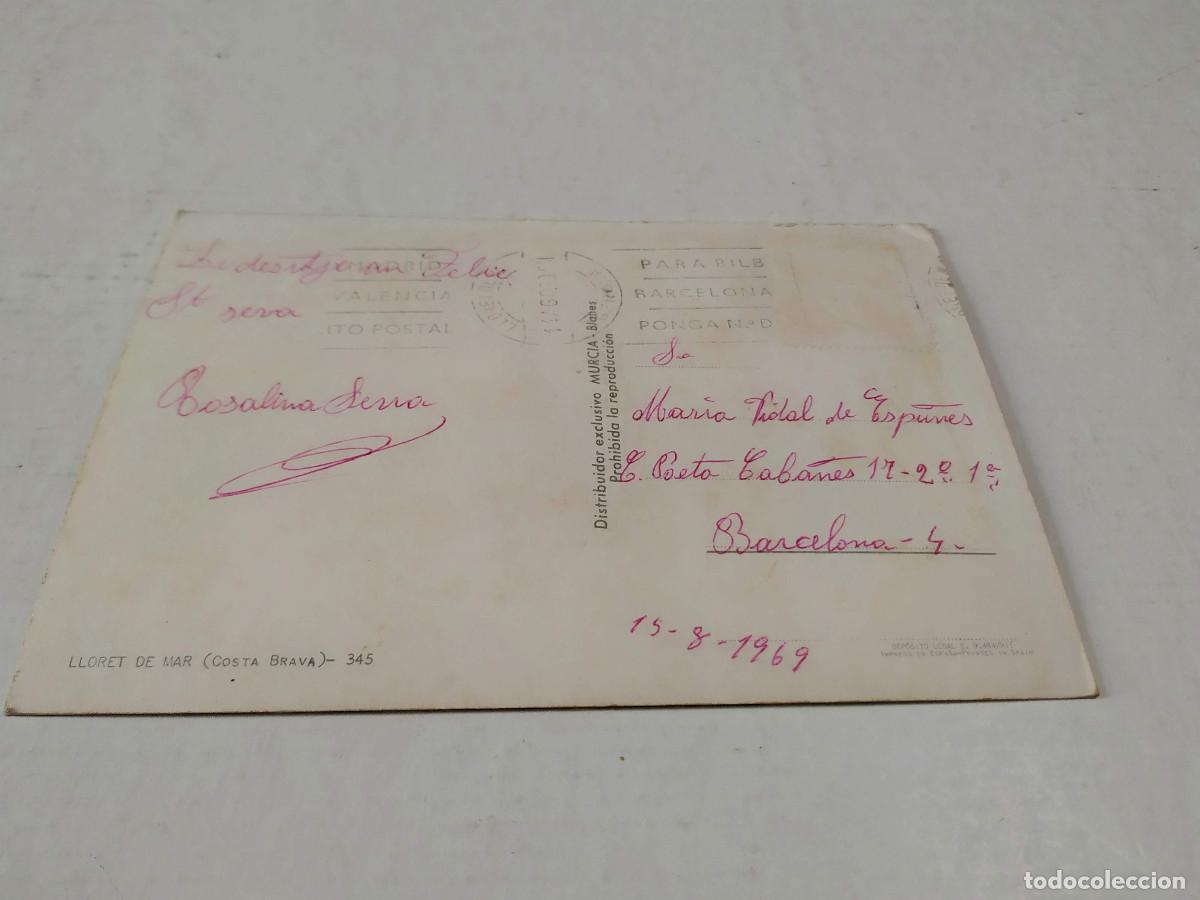 Li desitja un Feliç
St seva
Rosalina Serra
MADRID
VALENCIA
ITO POSTAL
PARA BILB
BARCELONA
PONGA N.º D
Distribuidor exclusivo MURCIA - Blanes
Prohibida la reproducción
Sra
María Vidal de Espuñes
C. Poeta Cabañes 17-2º 1ª
Barcelona - 4.
15-8-1969
LLORET DE MAR (COSTA BRAVA) - 345
DEPÓSITO LEGAL B.
todocoleccion